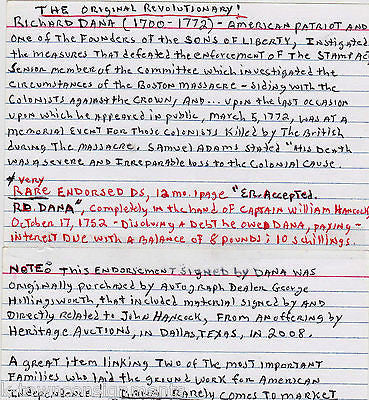 THE ORIGINAL REVOLUTIONARY!
RICHARD DANA (1700-1772) - AMERICAN PATRIOT AND
ONE OF THE FOUNDERS OF THE SONS OF LIBERTY, INSTIGATED
THE MEASURES THAT DEFEATED THE ENFORCEMENT OF THE STAMP ACT,
SENIOR MEMBER OF THE COMMITTEE WHICH INVESTIGATED THE
CIRCUMSTANCES OF THE BOSTON MASSACRE - SIDING WITH THE
COLONISTS AGAINST THE CROWN, AND... UPON THE LAST OCCASION
UPON WHICH HE APPEARED IN PUBLIC, MARCH 5, 1772, WAS AT A
MEMORIAL EVENT FOR THOSE COLONISTS KILLED BY THE BRITISH
DURING THE MASSACRE. SAMUEL ADAMS STATED "HIS DEATH
WAS A SEVERE AND IRREPARABLE LOSS TO THE COLONIAL CAUSE.
* VERY
RARE ENDORSED DS, 12mo, 1 page "ER. Accepted.
RD DANA", COMPLETELY IN THE HAND OF CAPTAIN WILLIAM HANCOCK
OCTOBER 17, 1752 - DISOLVING A DEBT HE OWED DANA, PAYING -
INTEREST DUE WITH A BALANCE OF 8 POUNDS; 10 SCHILLINGS.
NOTE: THIS ENDORSEMENT SIGNED BY DANA WAS
ORIGINALLY PURCHASED BY AUTOGRAPH DEALER GEORGE
HOLLINGSWORTH, THAT INCLUDED MATERIAL SIGNED BY AND
DIRECTLY RELATED TO JOHN HANCOCK, FROM AN OFFERING BY
HERITAGE AUCTIONS, IN DALLAS, TEXAS, IN 2008.
A GREAT ITEM LINKING TWO OF THE MOST IMPORTANT
FAMILIES WHO LAID THE GROUND WORK FOR AMERICAN
INDEPENDENCE! DANA RARELY COMES TO MARKET